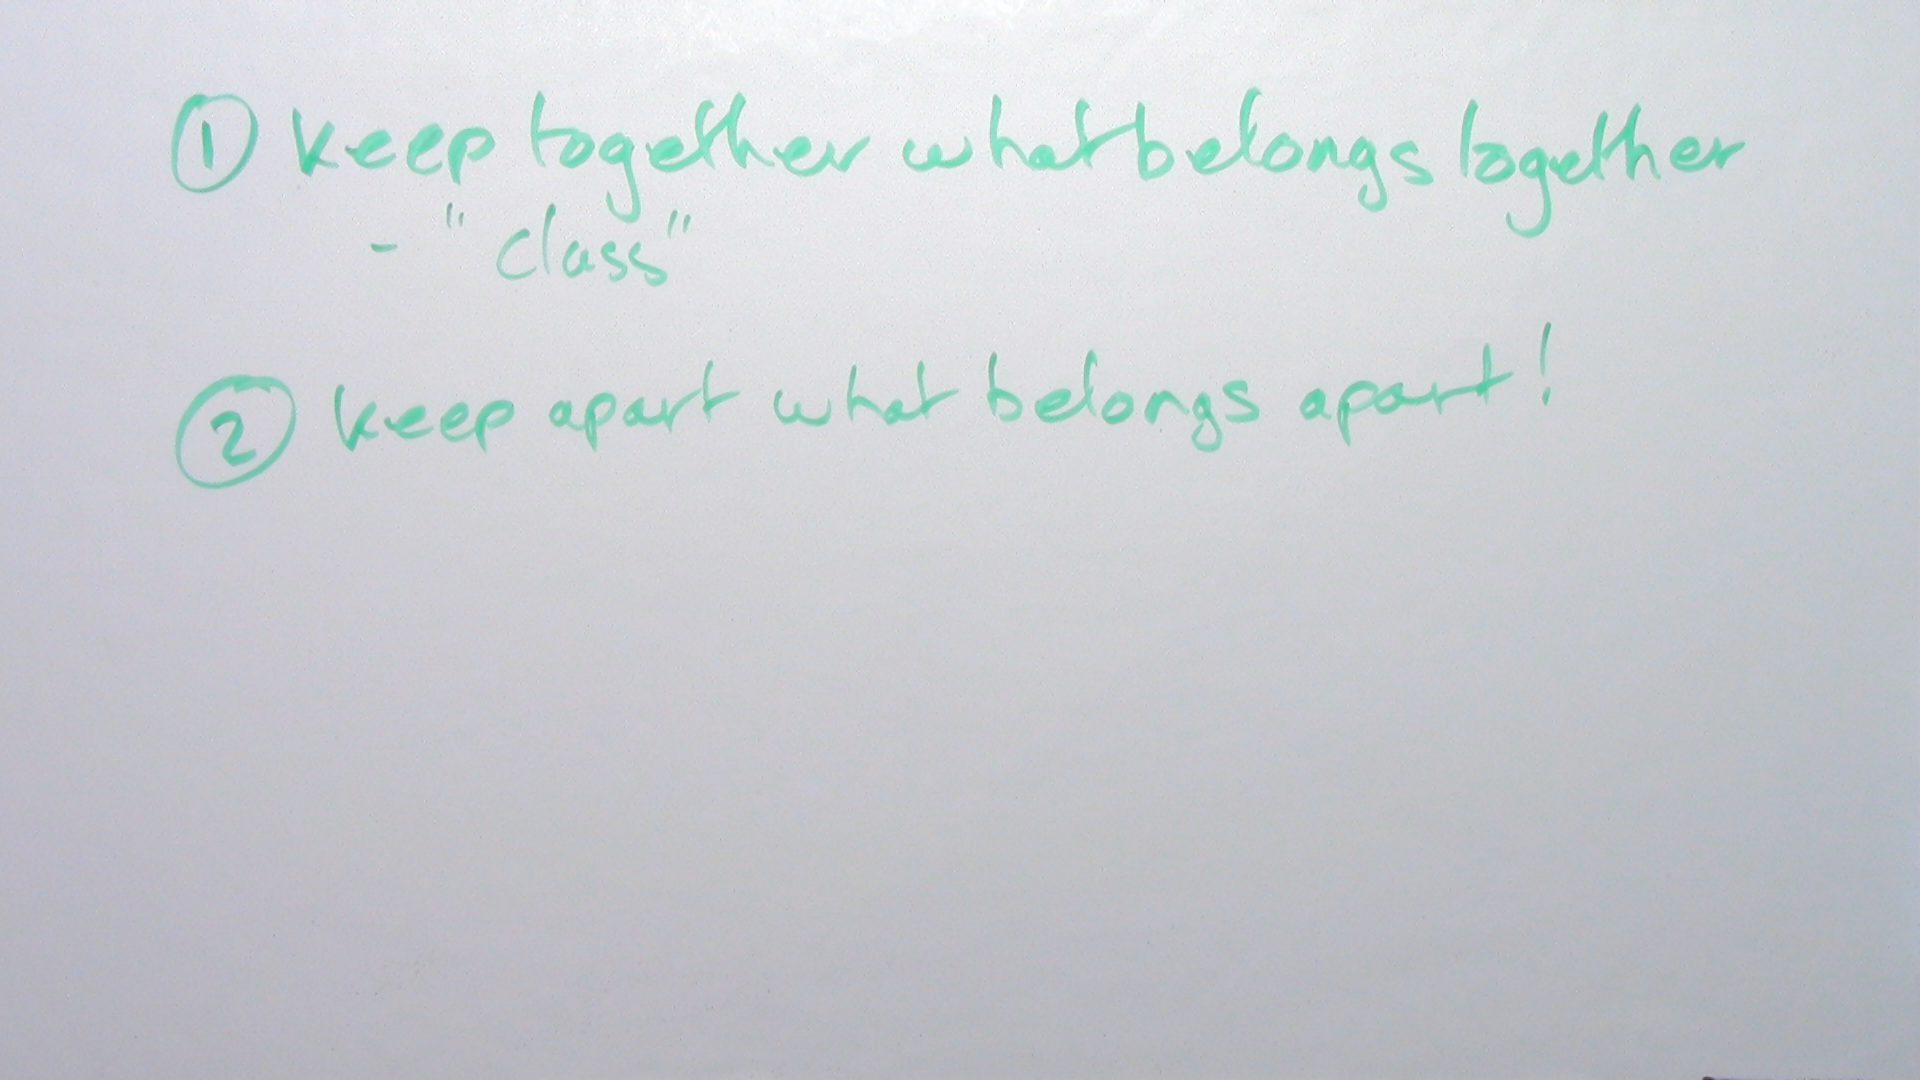 ① keep together what belongs together
- "class"
② keep apart what belongs apart!